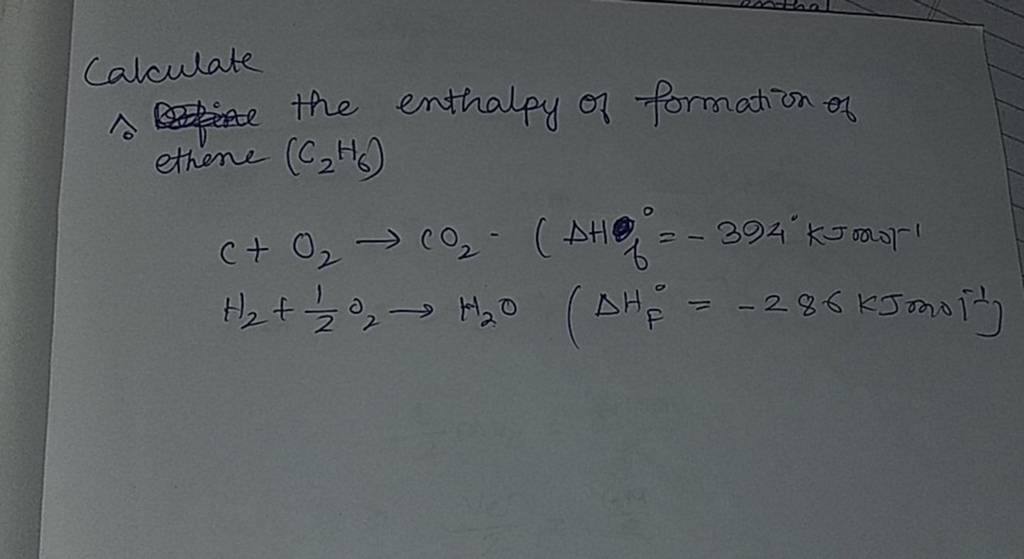 enthal
Calculate
the enthalpy of formation of
ethene (C₂H₆)
C + O₂ → CO₂ - (ΔH°f = - 394° KJmol⁻¹
H₂ + 1/2 O₂ → H₂O (ΔH°F = - 286 KJmol⁻¹)